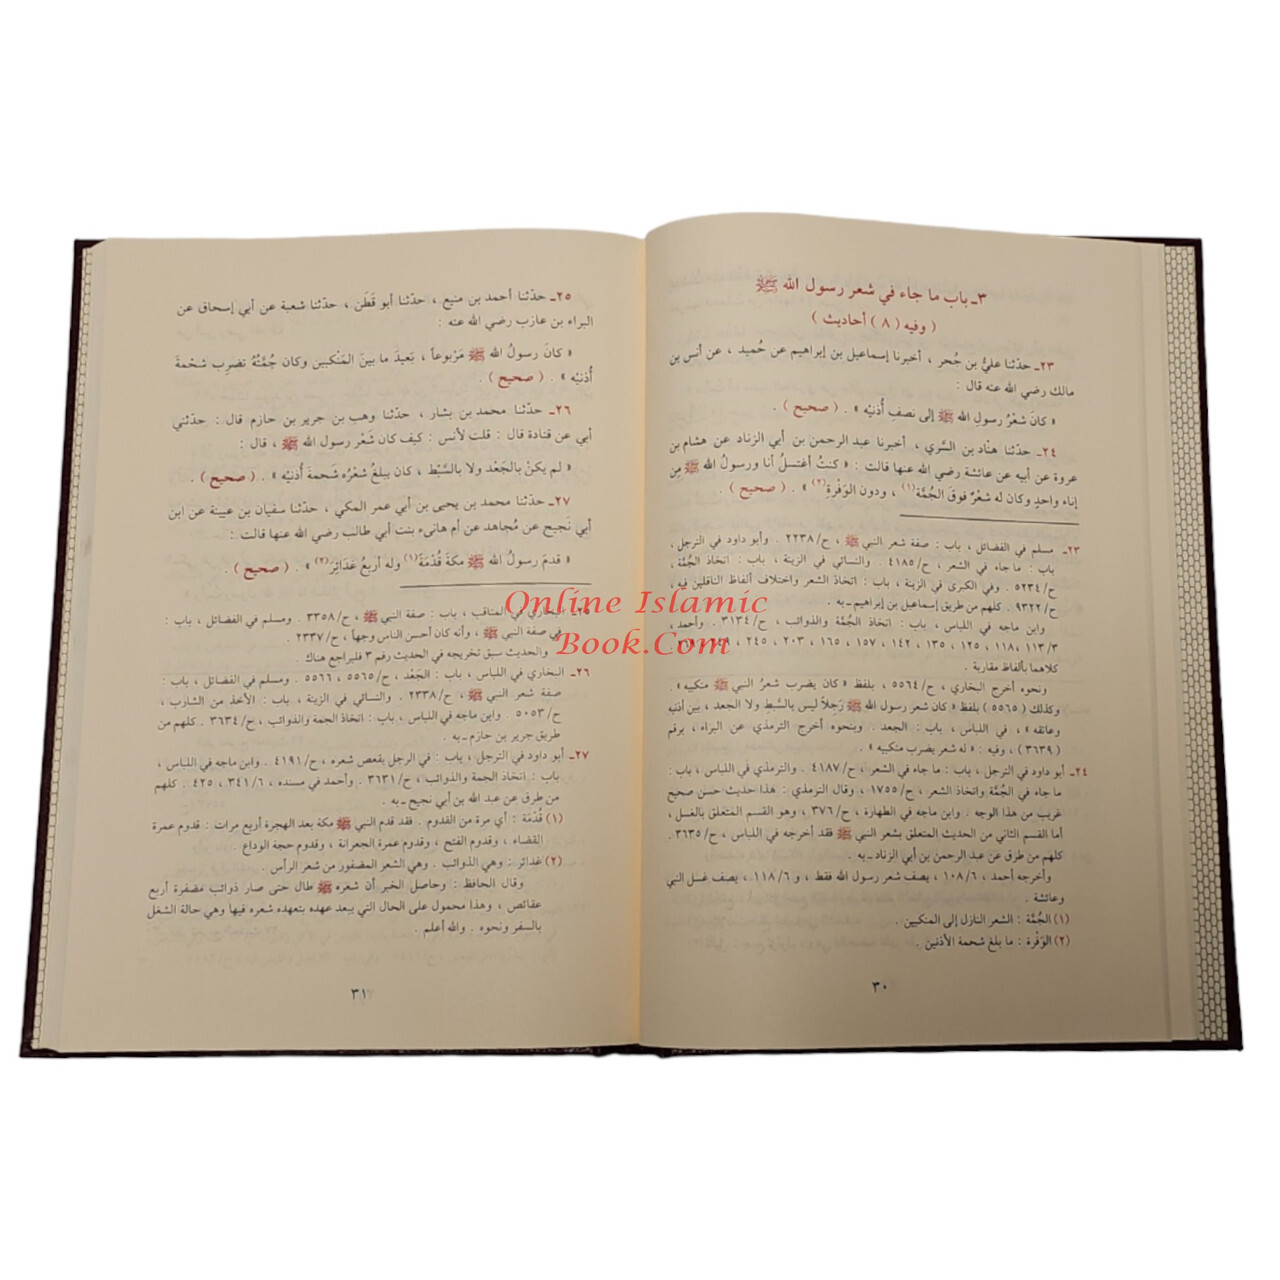 ٣ـ باب ما جاء في شعر رسول الله ﷺ
( وفيه ( ٨ ) أحاديث )
٢٣ـ حدّثنا عليُّ بن حُجر ، أخبرنا إسماعيل بن إبراهيم عن حُميد ، عن أنس بن
مالك رضي الله عنه قال :
« كانَ شَعْرُ رسولِ الله ﷺ إلى نصفِ أُذنيْه » . ( صحيح ) .
٢٤ـ حدّثنا هنّاد بن السَّري ، أخبرنا عبد الرحمن بن أبي الزناد عن هشام بن
عروة عن أبيه عن عائشة رضي الله عنها قالت : « كنتُ أغتسلُ أنا ورسولُ الله ﷺ مِن
إناء واحدٍ وكان له شعْرٌ فوقَ الجُمَّة(١) ، ودون الوَفْرةِ(٢) » . ( صحيح ) .
٢٣ـ مسلم في الفضائل ، باب : صفة شعر النبي ﷺ ، ح/٢٢٣٨ . وأبو داود في الترجل ،
باب : ما جاء في الشعر ، ح/٤١٨٥ . والنسائي في الزينة ، باب : اتخاذ الجُمَّة ،
ح/٥٢٣٤ . وفي الكبرى في الزينة ، باب : اتخاذ الشعر واختلاف ألفاظ الناقلين فيه ،
ح/٩٣٢٢ . كلهم من طريق إسماعيل بن إبراهيم ـ به .
وابن ماجه في اللباس ، باب : اتخاذ الجُمَّة والذوائب ، ح/٣١٣٤ . وأحمد ،
١١٣/٣ ، ١١٨، ١٢٥ ، ١٣٥ ، ١٤٢ ، ١٥٧ ، ١٦٥ ، ٢٠٣ ، ٢٤٥ ، ٢٤٩
كلاهما بألفاظ مقاربة .
ونحوه أخرج البخاري ، ح/٥٥٦٤ ، بلفظ « كان يضرب شعرُ النبي ﷺ منكبيه » .
وكذلك ( ٥٥٦٥ ) بلفظ « كان شعر رسول الله ﷺ رَجِلاً ليس بالسَّبِط ولا الجعد ، بين أذنيه
وعاتقه » ، في اللباس ، باب : الجعد . وبنحوه أخرج الترمذي عن البراء ، برقم
( ٣٦٣٩ ) ، وفيه : « له شعر يضرب منكبيه » .
٢٤ـ أبو داود في الترجل ، باب : ما جاء في الشعر ، ح/٤١٨٧ . والترمذي في اللباس ، باب :
ما جاء في الجُمَّة واتخاذ الشعر ، ح/١٧٥٥ ، وقال الترمذي : هذا حديث حسن صحيح
غريب من هذا الوجه . وابن ماجه في الطهارة ، ح/٣٧٦ ، وهو القسم المتعلق بالغسل ،
أما القسم الثاني من الحديث المتعلق بشعر النبي ﷺ فقد أخرجه في اللباس ، ح/٣٦٣٥ .
كلهم من طرق عن عبد الرحمن بن أبي الزناد ـ به .
وأخرجه أحمد ، ١٠٨/٦ ، يصف شعر رسول الله فقط ، و ١١٨/٦ ، يصف غسل النبي
وعائشة .
(١) الجُمَّة : الشعر النازل إلى المنكبين .
(٢) الوَفْرة : ما بلغ شحمة الأذنين .
٣٠
٢٥ـ حدّثنا أحمد بن منيع ، حدّثنا أبو قَطَن ، حدّثنا شعبة عن أبي إسحاق عن
البراء بن عازب رضي الله عنه :
« كانَ رسولُ الله ﷺ مَرْبوعاً ، بَعيدَ ما بينَ المَنْكبين وكان جُمَّتُهُ تضرِب شحْمةَ
أُذنيْه » . ( صحيح ) .
٢٦ـ حدّثنا محمد بن بشار ، حدّثنا وهب بن جرير بن حازم قال : حدّثني
أبي عن قتادة قال : قلت لأنس : كيف كان شَعْر رسول الله ﷺ ، قال :
« لم يكنْ بالجَعْد ولا بالسَّبْط ، كان يبلغُ شعْرُه شَحمةَ أُذنيْه » . ( صحيح ) .
٢٧ـ حدّثنا محمد بن يحيى بن أبي عمر المكي ، حدّثنا سفيان بن عيينة عن ابن
أبي نَجيح عن مُجاهد عن أم هانىء بنت أبي طالب رضي الله عنها قالت :
« قدمَ رسولُ الله ﷺ مكةَ قُدْمَةً(١) وله أربعُ غدائِرَ(٢) » . ( صحيح ) .
٢٥ـ البخاري في المناقب ، باب : صفة النبي ﷺ ، ح/٣٣٥٨ . ومسلم في الفضائل ، باب :
في صفة النبي ﷺ ، وأنه كان أحسن الناس وجهاً ، ح/٢٣٣٧ .
والحديث سبق تخريجه في الحديث رقم ٣ فليراجع هناك .
٢٦ـ البخاري في اللباس ، باب : الجَعْد ، ح/٥٥٦٥ ، ٥٥٦٦ . ومسلم في الفضائل ، باب :
صفة شعر النبي ﷺ ، ح/٢٣٣٨ . والنسائي في الزينة ، باب : الأخذ من الشارب ،
ح/٥٠٥٣ . وابن ماجه في اللباس ، باب : اتخاذ الجمة والذوائب ، ح/٣٦٣٤ . كلهم من
طريق جرير بن حازم ـ به .
٢٧ـ أبو داود في الترجل ، باب : في الرجل يعقص شعره ، ح/٤١٩١ . وابن ماجه في اللباس ،
باب : اتخاذ الجمة والذوائب ، ح/٣٦٣١ . وأحمد في مسنده ، ٣٤١/٦ ، ٤٢٥ . كلهم
من طرق عن عبد الله بن أبي نجيح ـ به .
(١) قُدْمَة : أي مرة من القدوم . فقد قدم النبي ﷺ مكة بعد الهجرة أربع مرات : قدوم عمرة
القضاء ، وقدوم الفتح ، وقدوم عمرة الجعرانة ، وقدوم حجة الوداع .
(٢) غدائر : وهي الذوائب . وهي الشعر المضفور من شعر الرأس .
وقال الحافظ : وحاصل الخبر أن شعره ﷺ طال حتى صار ذوائب مضفرة أربع
عقائص ، وهذا محمول على الحال التي يبعد عهده بتعهده شعره فيها وهي حالة الشغل
بالسفر ونحوه . والله أعلم .
٣١
Online Islamic
Book.Com